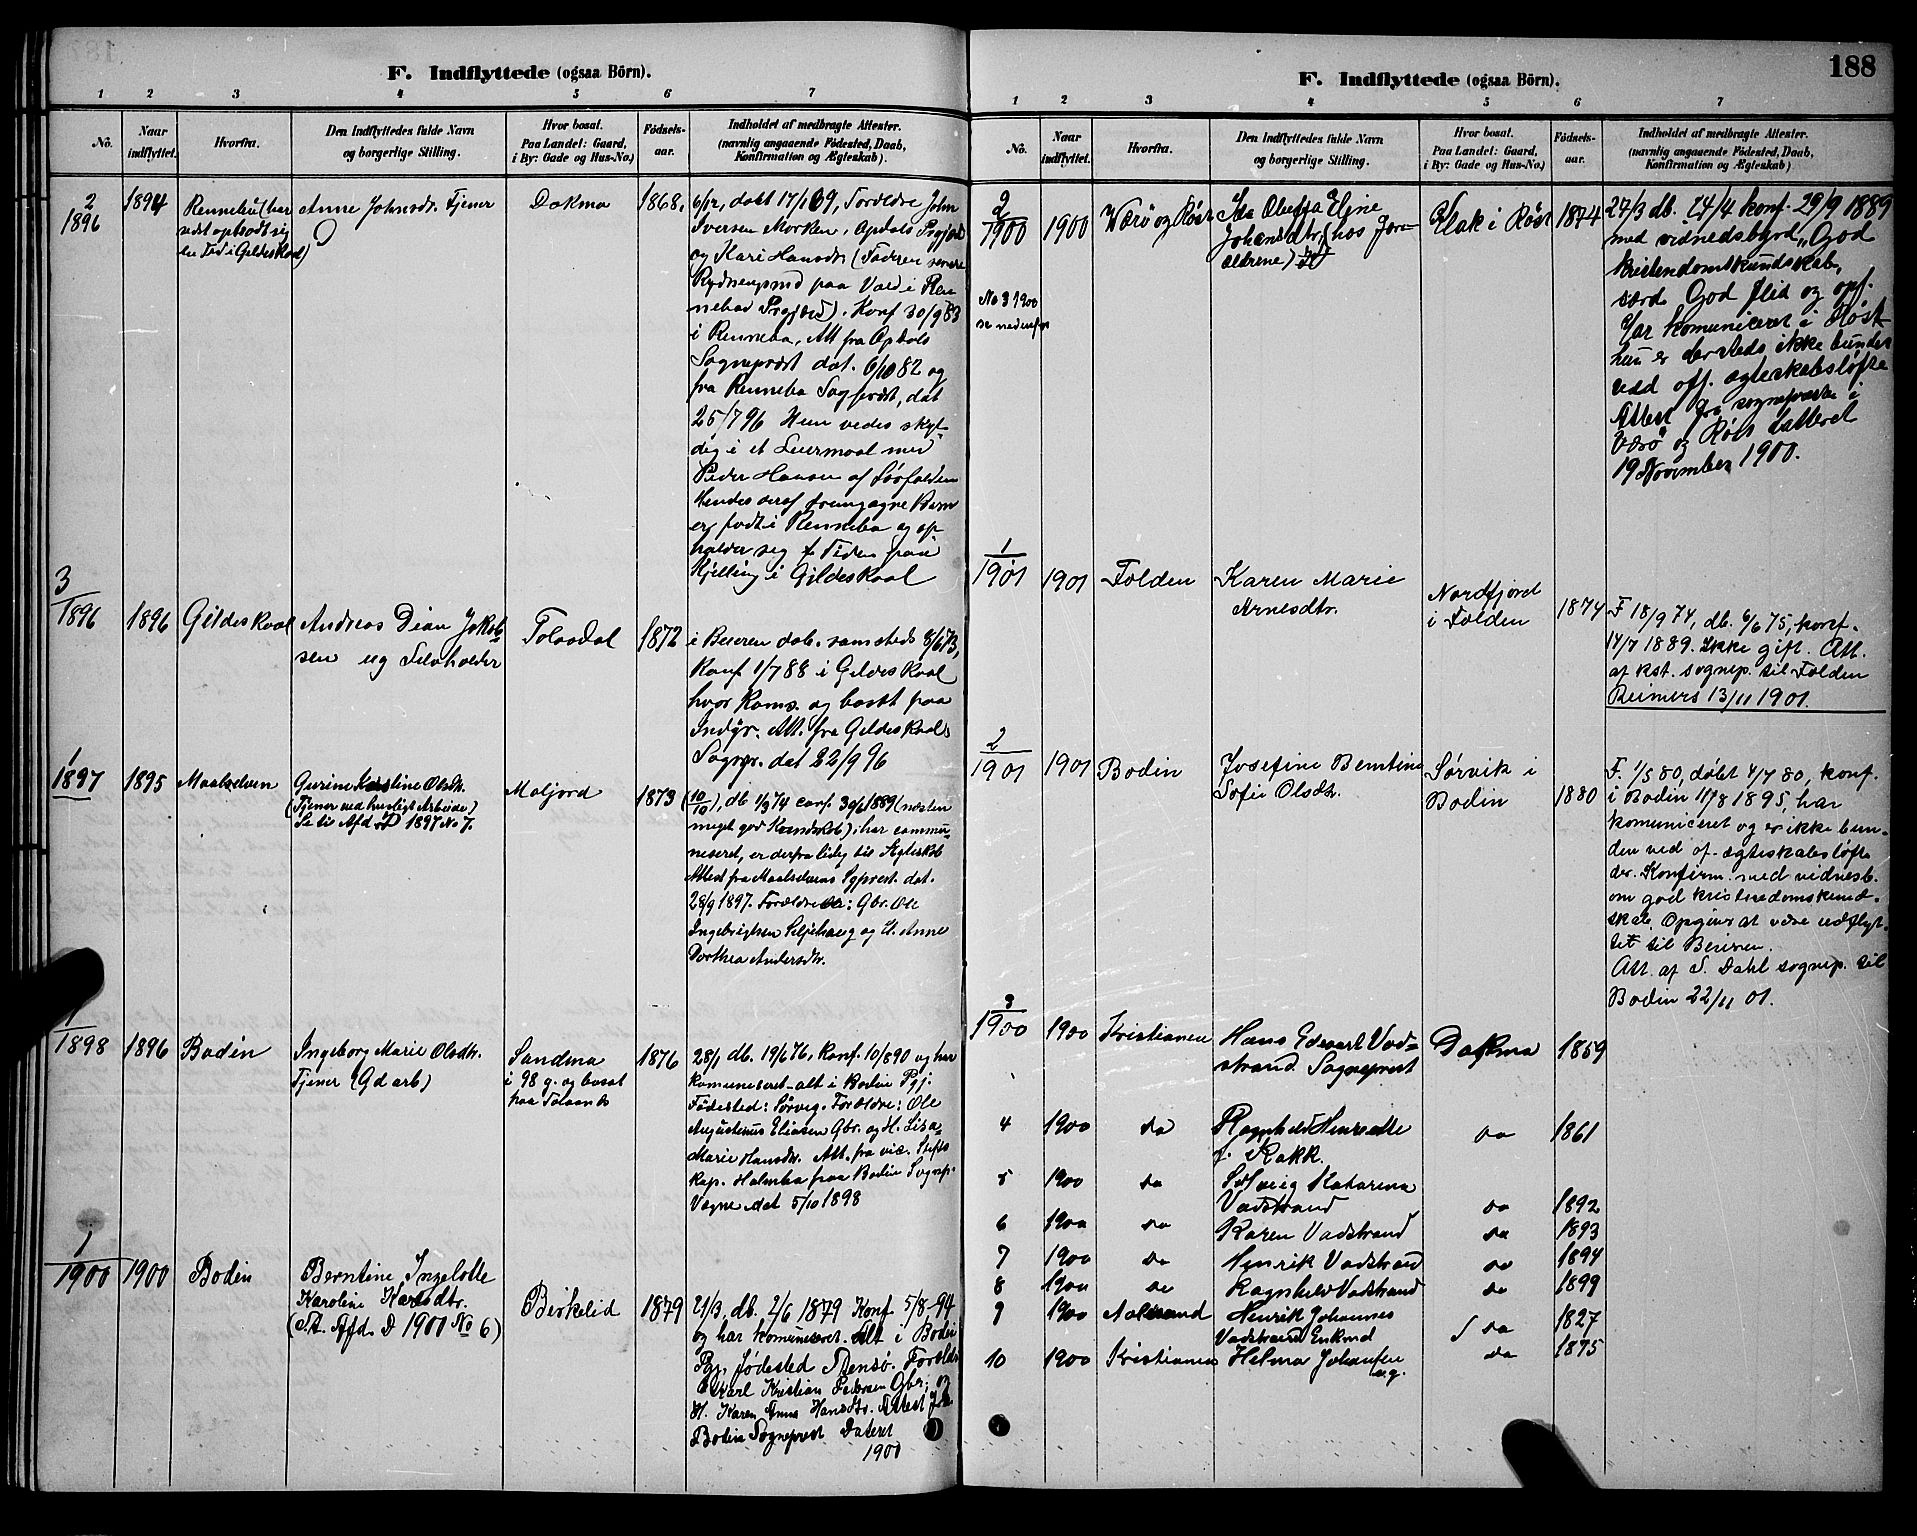 F. Indflyttede (ogsaa Börn).
1 2 3 4 5 6 7
No.
Naar indflyttet.
Hvorfra.
Den Indflyttedes fulde Navn
og borgerlige Stilling.
Hvor bosat.
Paa Landet: Gaard,
i By: Gade og Hus-No.)
Födsels-
aar.
Indholdet af medbragte Attester.
(navnlig angaaende Födested, Daab,
Konfirmation og Ægteskab).
2
1896
1894
Rennebu (har
sidst opholdt sig
en Tid i Gildeskaal)
Anne Johnsdr. Tjener
Dokmo
1868.
6/12, døbt 17/1 69, Forældre John
Iversen Morken, Opdals Prgjæld
og Kari Hansdr (Faderen senere
Rydningsmd paa Vold i Ren
nebu Prgjæld). Konf 30/9 83
i Rennebu, Att fra Opdals
Sogneprest dat. 6/10 82 og
fra Rennebu Sogprest, dat
25/7 96 Hun vedes skyl-
dig i et Leiermaal med
Peder Hansen af Sørfolden
Hendes deraf fremgagne Barn
er født i Rennebu og op-
holder sig f Tiden paa
Kjelling i Gildeskaal
3
1896
1896
Gildeskaal
Andreas Dian Jakob
sen ug Selvholder
Tolaadal
1872
i Beieren døb. samsteds 8/6 73,
Konf 1/7 88 i Gildeskaal
hvor Koms. og bosat paa
Indyr. Att. fra Gildeskaals
Sogpr. dat 22/9 96
1
1897
1895
Maalselven
Gurine Karoline Olsdr.
(Tjener ved husligt Arbeide)
Se lit Afd. D 1897 No 7.
Moljord
1873
(10/10), db 1/3 74 conf. 30/6 1889 (næsten
meget god Kundskab); har commu-
niseret, er derfra ledig til Ægteskab
Attest fra Maalselvens Sgprest. dat.
28/9 1897. Forældre: Gbr. Ole
Ingebrigtsen Seljehaug og H. Anne
Dorthea Andersdtr.
1
1898
1896
Bodin
Ingeborg Marie Olsdtr.
Tjener (Gd arb)
Sandmo
i 98 g. og bosat
paa Tolaanes
1876
28/1 db. 19/6 76. Konf. 10/8 90 og har
komuniseret - alt i Bodin Pgj.
Fødested: Sørvig. Forældre: Ole
Augustinus Eliasen Gbr. og H. Lisa-
Marie Hansdr. Att. fra vic. Stifts
Kap. Holmboe paa Bodin Sognep.
Vegne dat 5/10 1898
1
1900
1900
Bodin
Berntine Ingelotte
Karoline Karlsdtr.
(Se Afd. D 1900 No 6)
Birkelid
1879
21/3, db. 2/6 1879 Konf 5/8-94
og har komuniceret. Alt i Bodin
Pgj. Fødested Stensø. Foreldre
Karl Kristian Pedersen Gbr; og
H. Karen Anna Hansdtr. Attest fra
Bodin Sogneprest Dateret
1900
F. Indflyttede (ogsaa Börn).
188
1 2 3 4 5 6 7
No.
Naar
indflyttet.
Hvorfra.
Den Indflyttedes fulde Navn
og borgerlige Stilling.
Hvor bosat.
Paa Landet: Gaard,
i By: Gade og Hus-No.)
Födsels-
aar.
Indholdet af medbragte Attester.
(navnlig angaaende Födested, Daab,
Konfirmation og Ægteskab)
2
1900
1900
Værø og Røst
Ida Oluffa Eline
Johansdtr. (hos For-
ældrene)
No 3 1900
se nedenfor
i Røst
1874
27/3 db. 24/4 konf. 29/9 1889
med vidnedsbyrd „God
kristendomskundskab,
særd. God flid og opf.
Har komuniceret i Røst
hun er dersteds ikke bunden
ved off. ægteskabsløfte
Attest fra sogneprest i
Værø og Røst datteret
19 November 1900.
1
1901
1901
Folden
Karen Marie
Arnesdtr.
Nordfjord
i Folden
1874
F 18/9 74, db. 6/6 75, konf.
14/7 1889. Ikke gift. Att.
af kst. sognep. til Folden
Reimers 13/11 1901.
2
1901
1901
Bodin
Josefine Berntine
Sofie Olsdtr.
Sørvik i
Bodin
1880
F. 1/5 80, døbt 4/7 80, konf.
i Bodin 11/8 1895, har
komuniceret og er ikke bun-
den ved of. ægteskabsløfte
der. Konfirm. med vidnesb.
om god kristendomskund-
skab. Opgives at være udflyt-
tet til Beieren.
Att. af S. Dahl sognep. til
Bodin 22/11 01.
3
1900
1900
Kristianen
Hans Edvart Vad-
strand. Sogneprest
Dokmo
1859
4
1900
do
Ragnhild Henriette
f. Rakk.
do
1861
5
1900
do
Solveig Katarina
Vadstrand
do
1892
6
1900
do
Karen Vadstrand
do
1893
7
1900
do
Henrik Vadstrand
do
1894
8
1900
do
Ragnhild Vadstrand
do
1899
9
1900
Henrik Johannes
Vadstrand Enkmd
do
1827
10
1900
Kristianen
Helma Johansen
ug.
do
1875